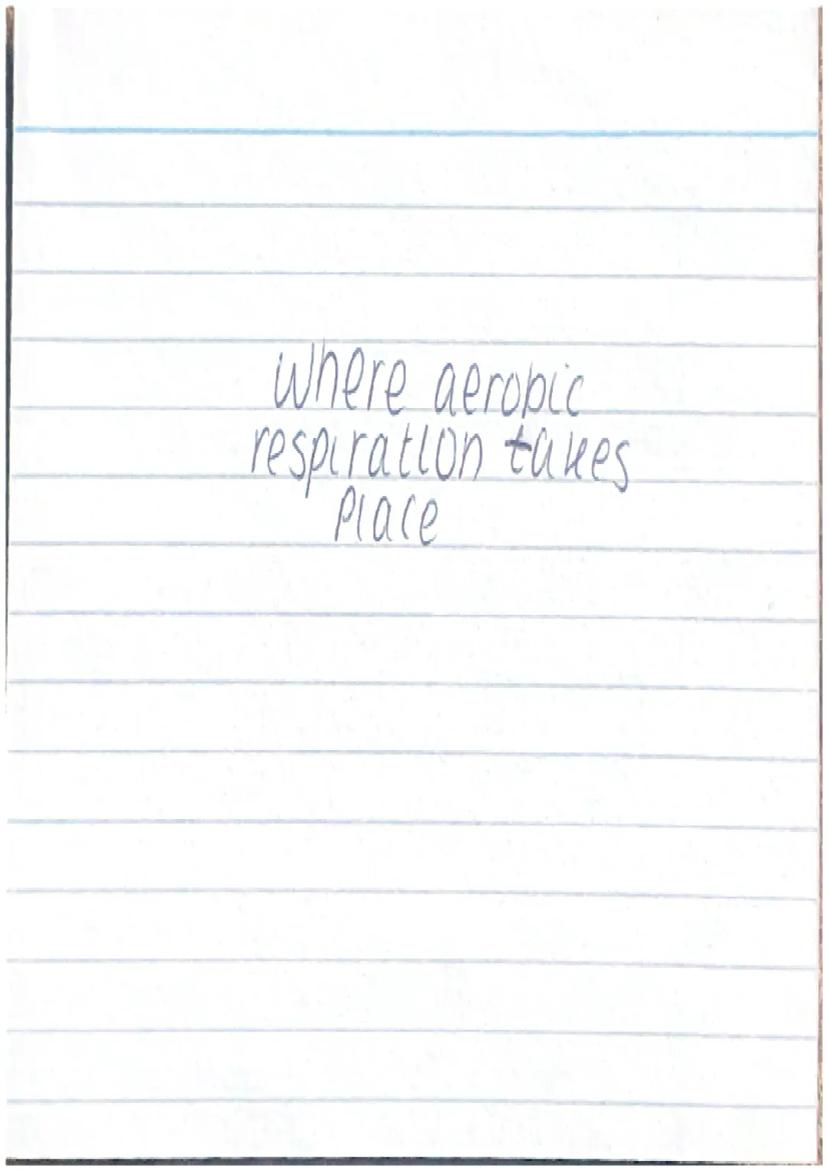 where aerobic
respiration takes
place